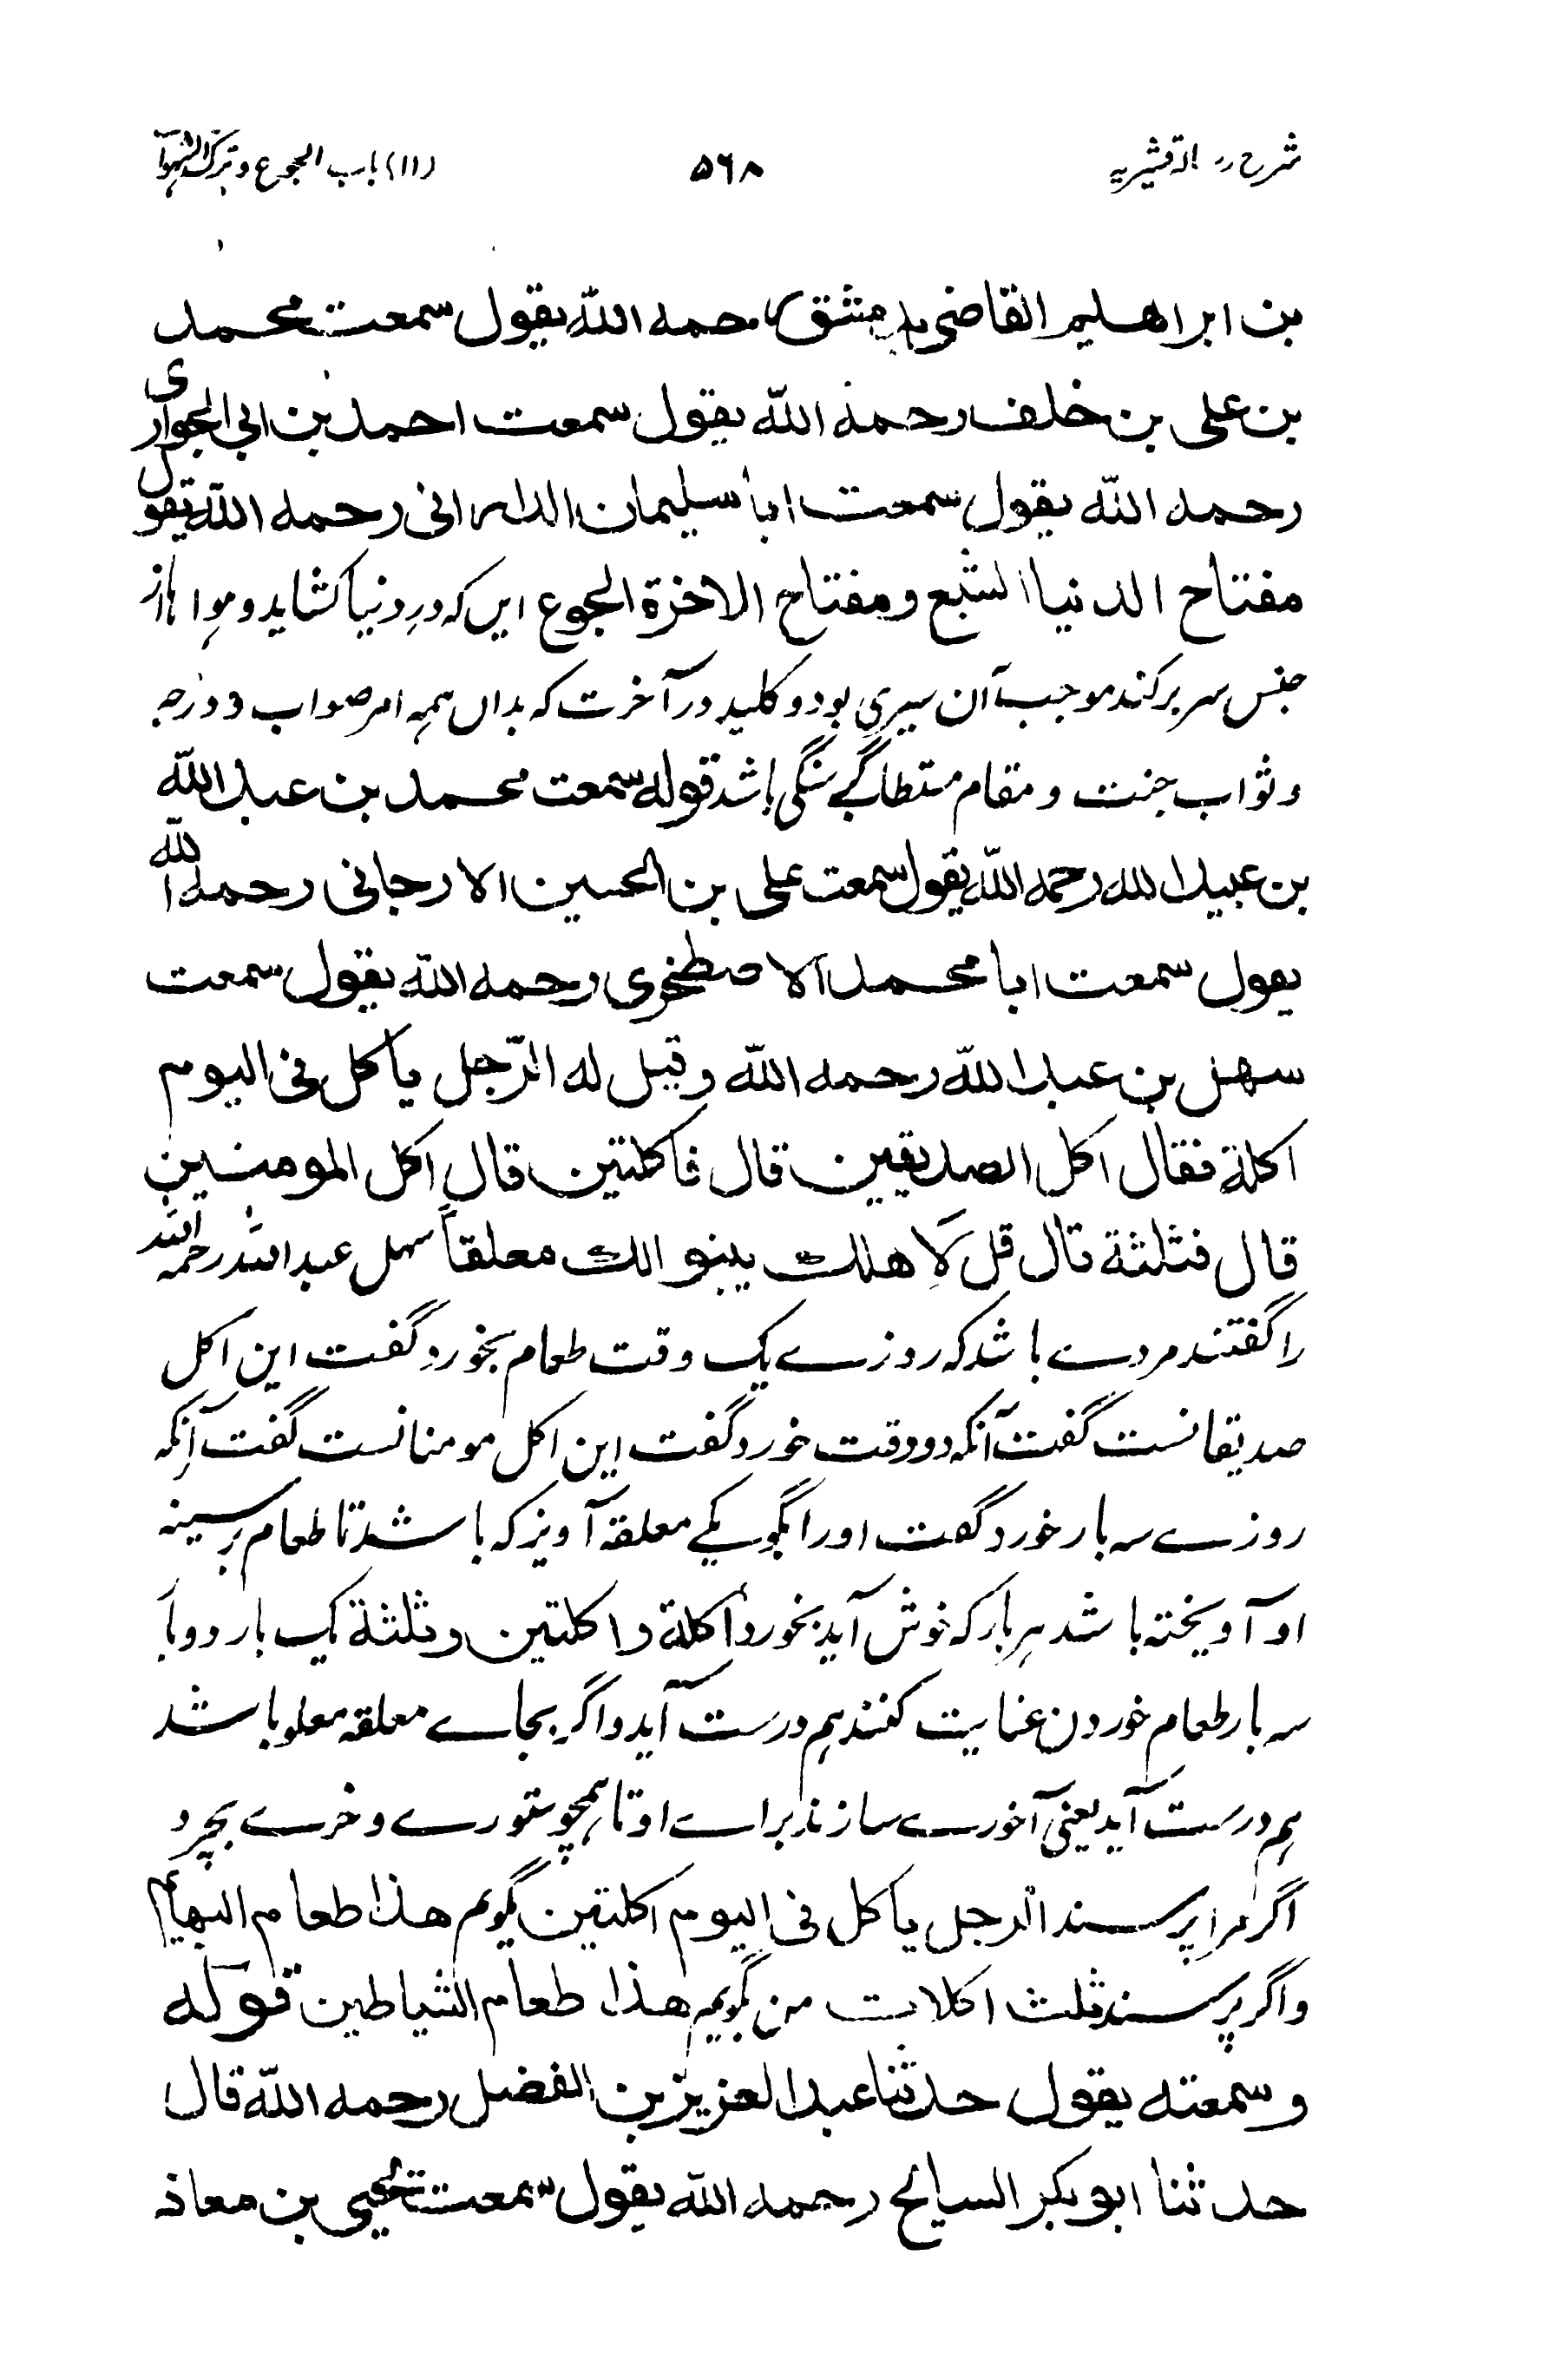 شرح رسالہ قشیریہ ۵۶۸ (۱۱) باب الجوع و ترک الشہوات
بن ابراهیم القاضی بدمشق رحمه الله یقول سمعت محمد
بن علی بن خلف رحمه الله یقول سمعت احمد بن ابی الجواری
رحمه الله یقول سمعت ابا سلیمان الدارانی رحمه الله یقول
مفتاح الدنیا الشبع و مفتاح الاخرة الجوع ایں که در دنیا کشاید و هوا ها از
جنس سر بر کند موجب آن سیری بود و کلید در آخرت که بداں همه امر صواب و درجه
و ثواب جنت و مقام متطا گے سنگی باشد قوله سمعت محمد بن عبد الله
بن عبید الله رحمه الله یقول سمعت علی بن الحسین الارجانی رحمه الله
یقول سمعت ابا محمد الاصطخری رحمه الله یقول سمعت
سهل بن عبد الله رحمه الله و قیل له الرّجل یأکل فی الیوم
اکلة فقال اکل الصدیقین قال فاکلتین قال اکل المومنین
قال فثلثة قال قل لِاهلك یبنوا لك معلقاً سهل عبد الله رحمه الله
را گفتند مردے باشد که روزے یک وقت طعام بخورد گفت این اکل
صدیقانست گفت آنکه دو وقت خورد گفت این اکل مومنانست گفت آنکه
روزے سه بار خورد گفت او را بگو یکے معلقه آویز که باشد تا طعام بر سینه
او آویخته باشد هر بار که خوش آید بخورد اکلة و اکلتین و ثلثة یک بار دو بار
سه بار طعام خوردن عنایت کنند هم درست آید و اگر بجاے معلقه معلو باشد
هم درست آید یعنی آخورے سازند براے او تا همچو ستورے و خرے بچرد
اگر مرا پرسند الرجل یاکل فی الیوم اکلتین گویم هذا طعام البهایم
و اگر پرسند ثلث اکلات من گویم هذا طعام الشیاطین قوله
و سمعته یقول حدثنا عبد العزیز بن الفضل رحمه الله قال
حدثنا ابو بکر السایح رحمه الله یقول سمعت یحیی بن معاذ